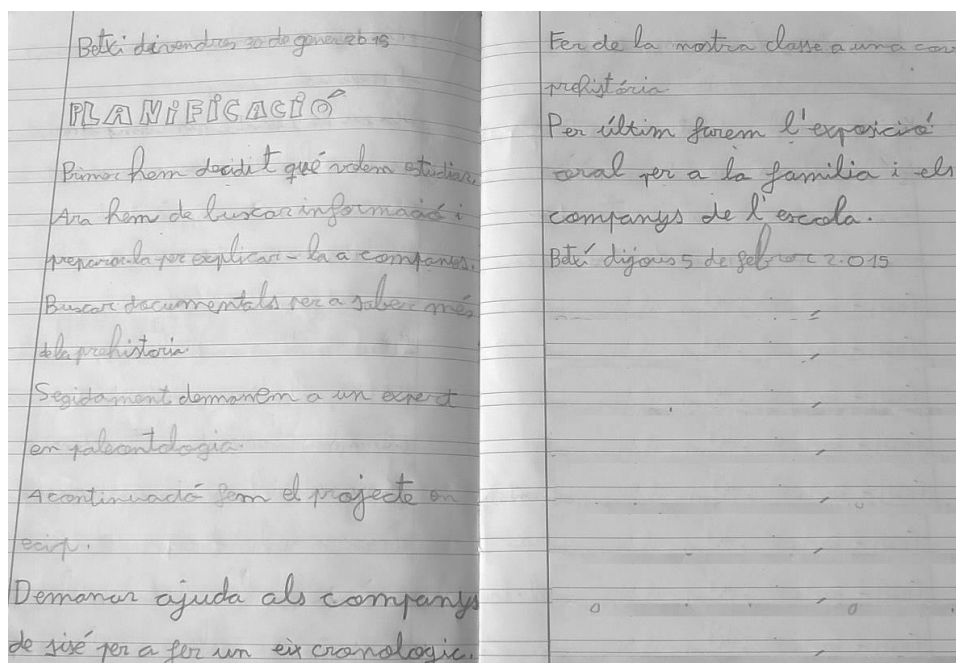 Betxi divendres 30 de gener 2015
PLANIFICACIÓ
Primer hem decidit qué volem estudiar.
Ara hem de buscar informació i
preparar-la per explicar-la a companys.
Buscar documentals per a saber més
de la prehistoria.
Segidament demanem a un expert
en paleontologia.
A continuació fem el projecte en
ecip.
Demanar ajuda als companys
de sisé per a fer un eix cronologic.
Fer de la nostra classe a una cov
prehistória
Per últim farem l'exposició
oral per a la familia i els
companys de l'escola.
Betxí dijous 5 de febrer 2.015